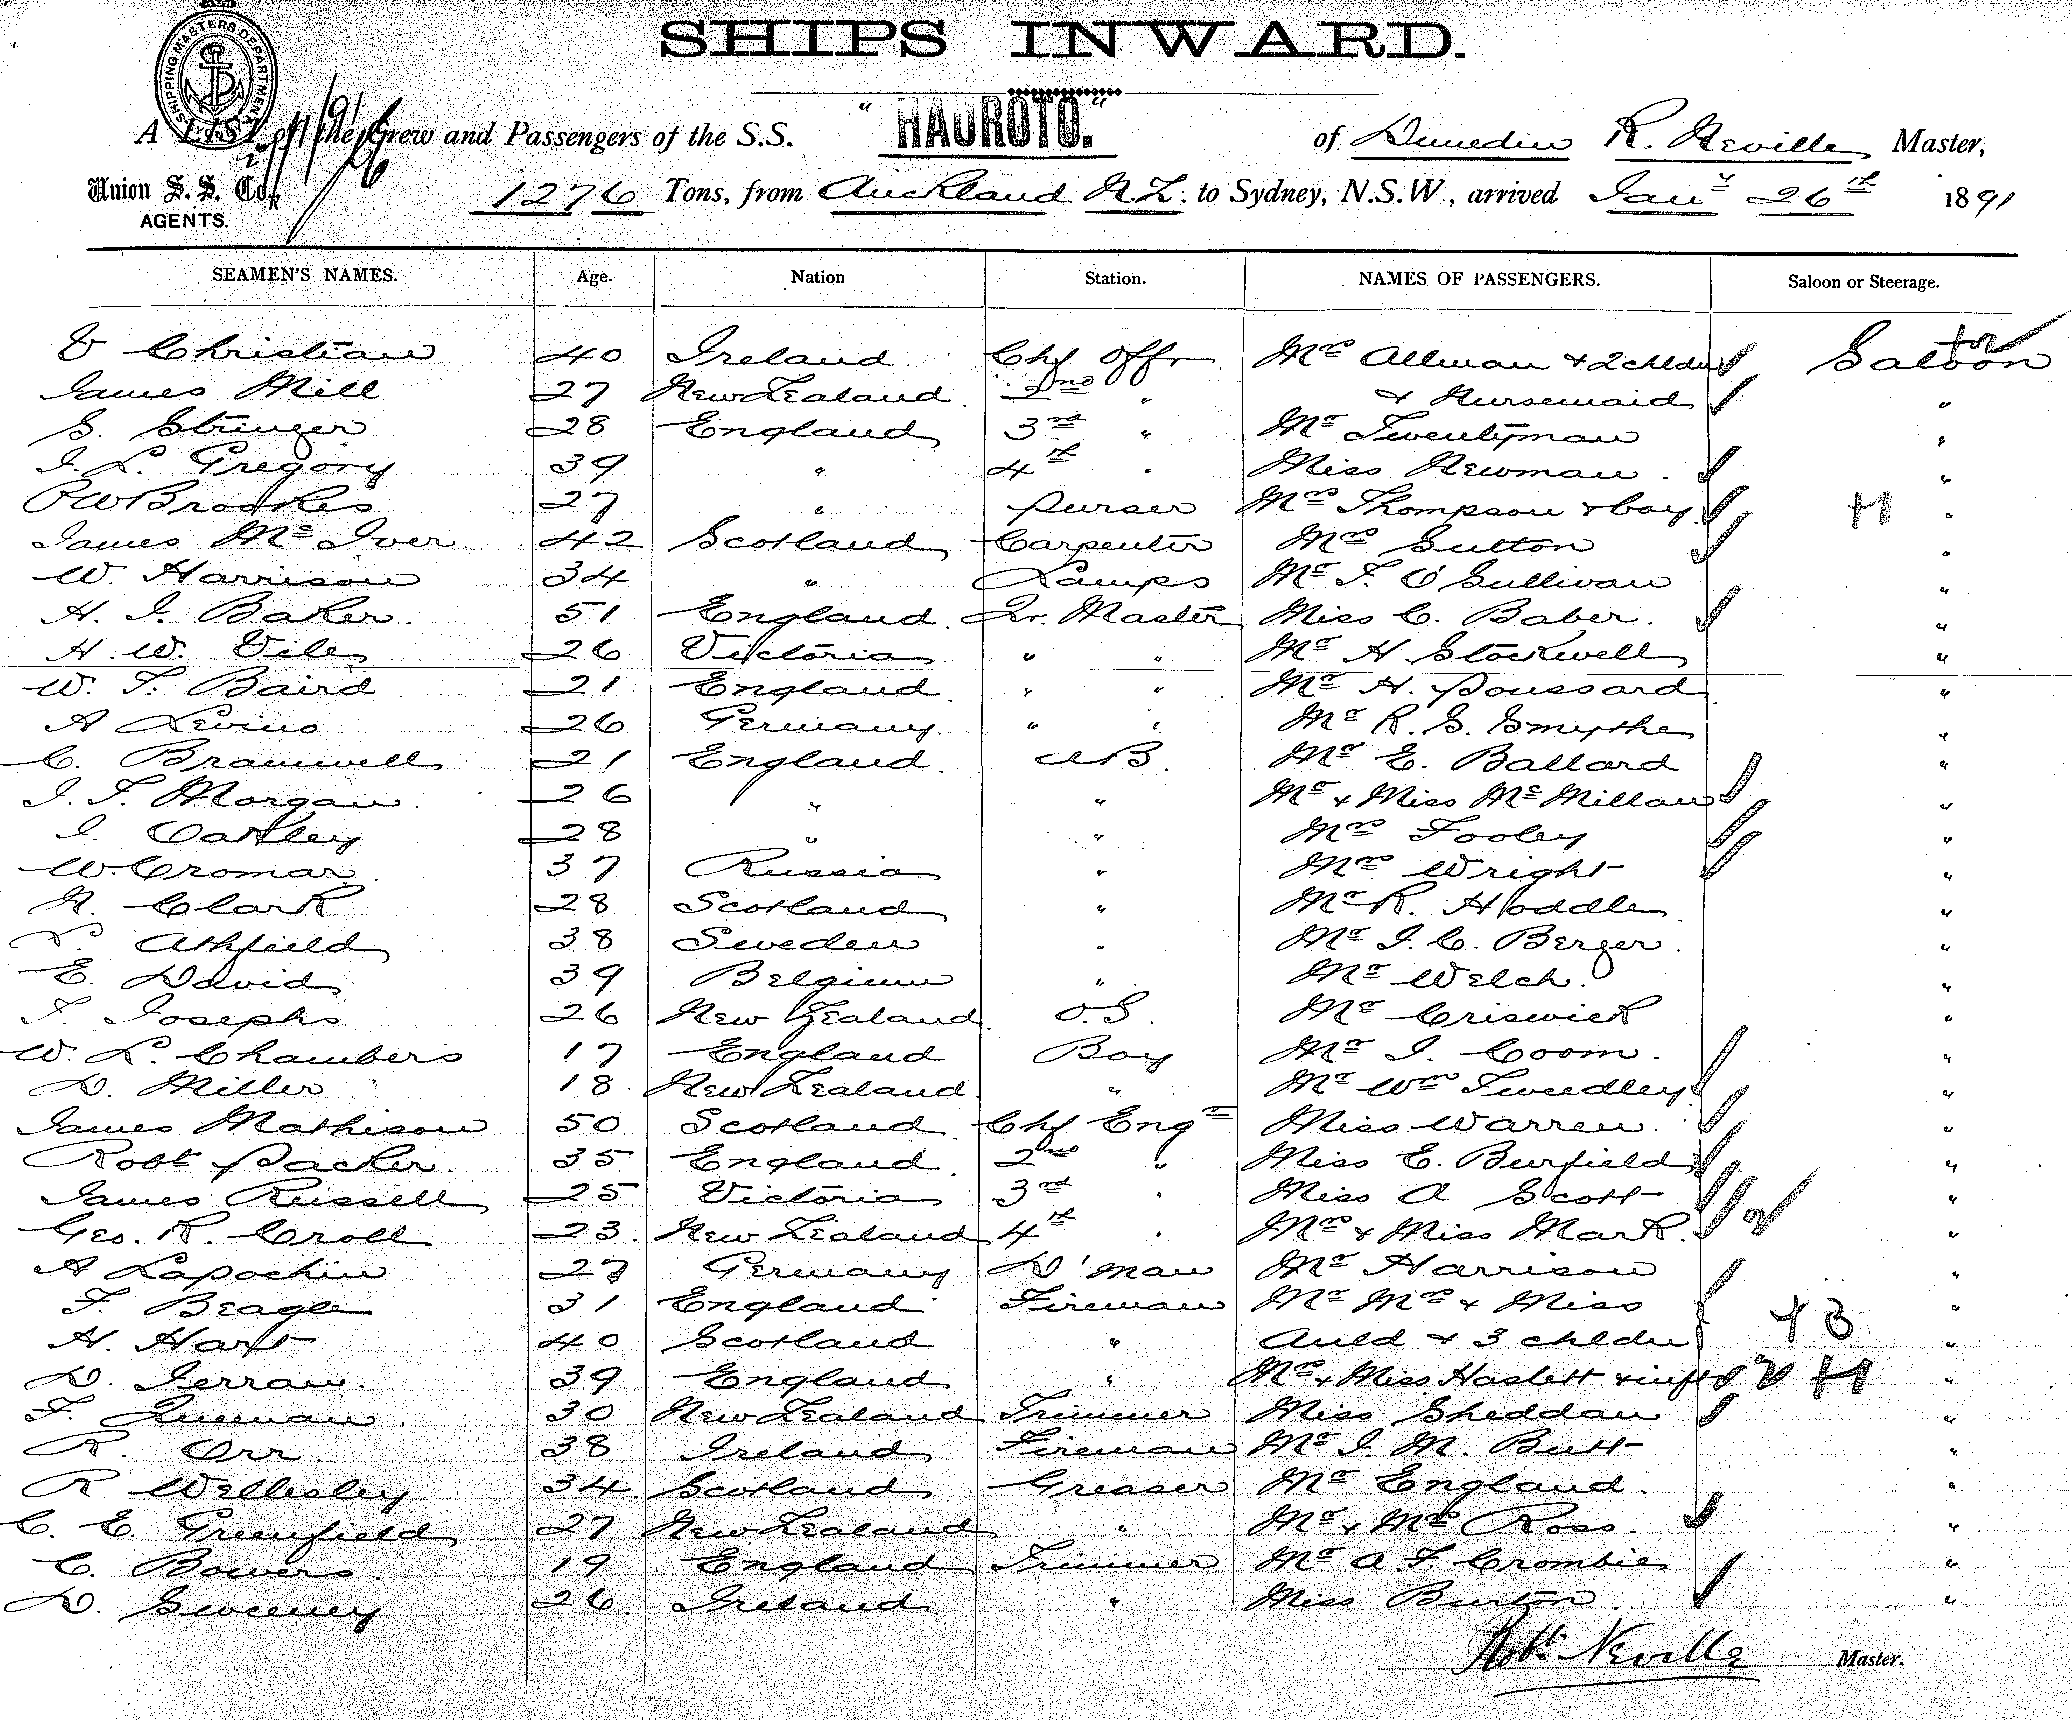 SHIPS INWARD.
SHIPPING MASTERS DEPARTMENT
A LIST of the Crew and Passengers of the S.S. "HAUROTO." of Dunedin R. Neville Master,
Union S. S. Co. 1276 Tons, from Auckland N.Z. to Sydney, N.S.W., arrived Jany 26th 1891
AGENTS.
SEAMEN'S NAMES. Age. Nation Station. NAMES OF PASSENGERS. Saloon or Steerage.
Christian 40 Ireland Chf Offr Mrs Allman + 2 chldn Saloon
James Mill 27 New Zealand 2nd " + Nursemaid "
S. Stringer 28 England 3rd " Mr Twentyman "
J. L. Gregory 39 " 4th " Miss Newman "
P W Brookes 27 " Purser Mrs Thompson + boy "
James McIver 42 Scotland Carpenter Mrs Sutton "
W. Harrison 34 " Lamps Mr T. O'Sullivan "
H. J. Baker 51 England Qr. Master Miss C. Baber "
H. W. Vile 26 Victoria " " Mr H Stockwell "
W. T. Baird 21 England " " Mr H. Poussard "
A Levino 26 Germany " " Mr R. S. Smythe "
C. Bramwell 21 England AB. Mr E. Ballard "
J. T. Morgan 26 " " Mr + Miss McMillan "
J. Oakley 28 " " Mrs Tooley "
W. Cromar 37 Russia " Mrs Wright "
N. Clark 28 Scotland " Mr R. Hoddle "
Athfield 38 Sweden " Mr J. C. Berger "
E. David 39 Belgium " Mr Welch "
T. Josephs 26 New Zealand O.S. Mr Criswick "
W. L. Chambers 17 England Boy Mr J. Coom "
D. Miller 18 New Zealand " Mr Wm Tweedley "
James Mathison 50 Scotland Chf Engr Miss Warren "
Robt Packer 35 England 2nd " Miss E. Burfield "
James Russell 25 Victoria 3rd " Miss A Scott "
Geo. R. Croll 23 New Zealand 4th " Mrs + Miss Mark 2 "
A Lapochin 27 Germany D'man Mr Harrison "
F. Beagle 31 England Fireman Mr Mrs + Miss "
H. Hart 40 Scotland " Auld + 3 chldn + 3 "
D. Jerram 39 England " Mrs + Miss Haslett + inft 2 + 1 "
T. 30 New Zealand Trimmer Miss Sheddan "
R. Orr 38 Ireland Fireman Mr J. M. Butt "
R Wellesley 34 Scotland Greaser Mr England "
C. E. Greenfield 27 New Zealand " Mr + Mrs Ross "
C. Bowers 19 England Trimmer Mr A F Crombie "
D. Sweeney 26 Ireland " Miss Burton "
Robt Neville Master.